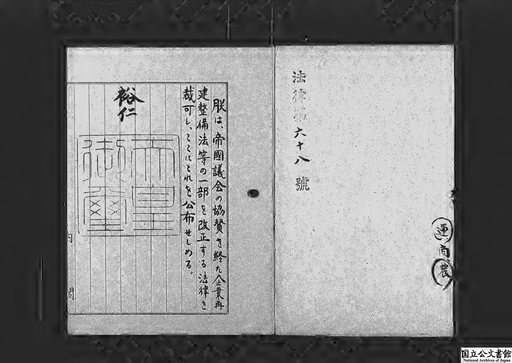 法律第六十八號
運
商
農
朕は、帝國議会の協賛を経た企業再
建整備法等の一部を改正する法律を
裁可し、ここにこれを公布せしめる。
裕仁
天皇
御璽
内
閣
国立公文書館
National Archives of Japan